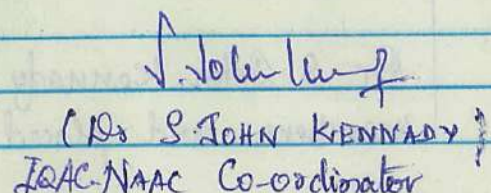 S. John Kennady
(Dr S. JOHN KENNADY)
IQAC-NAAC Co-ordinator